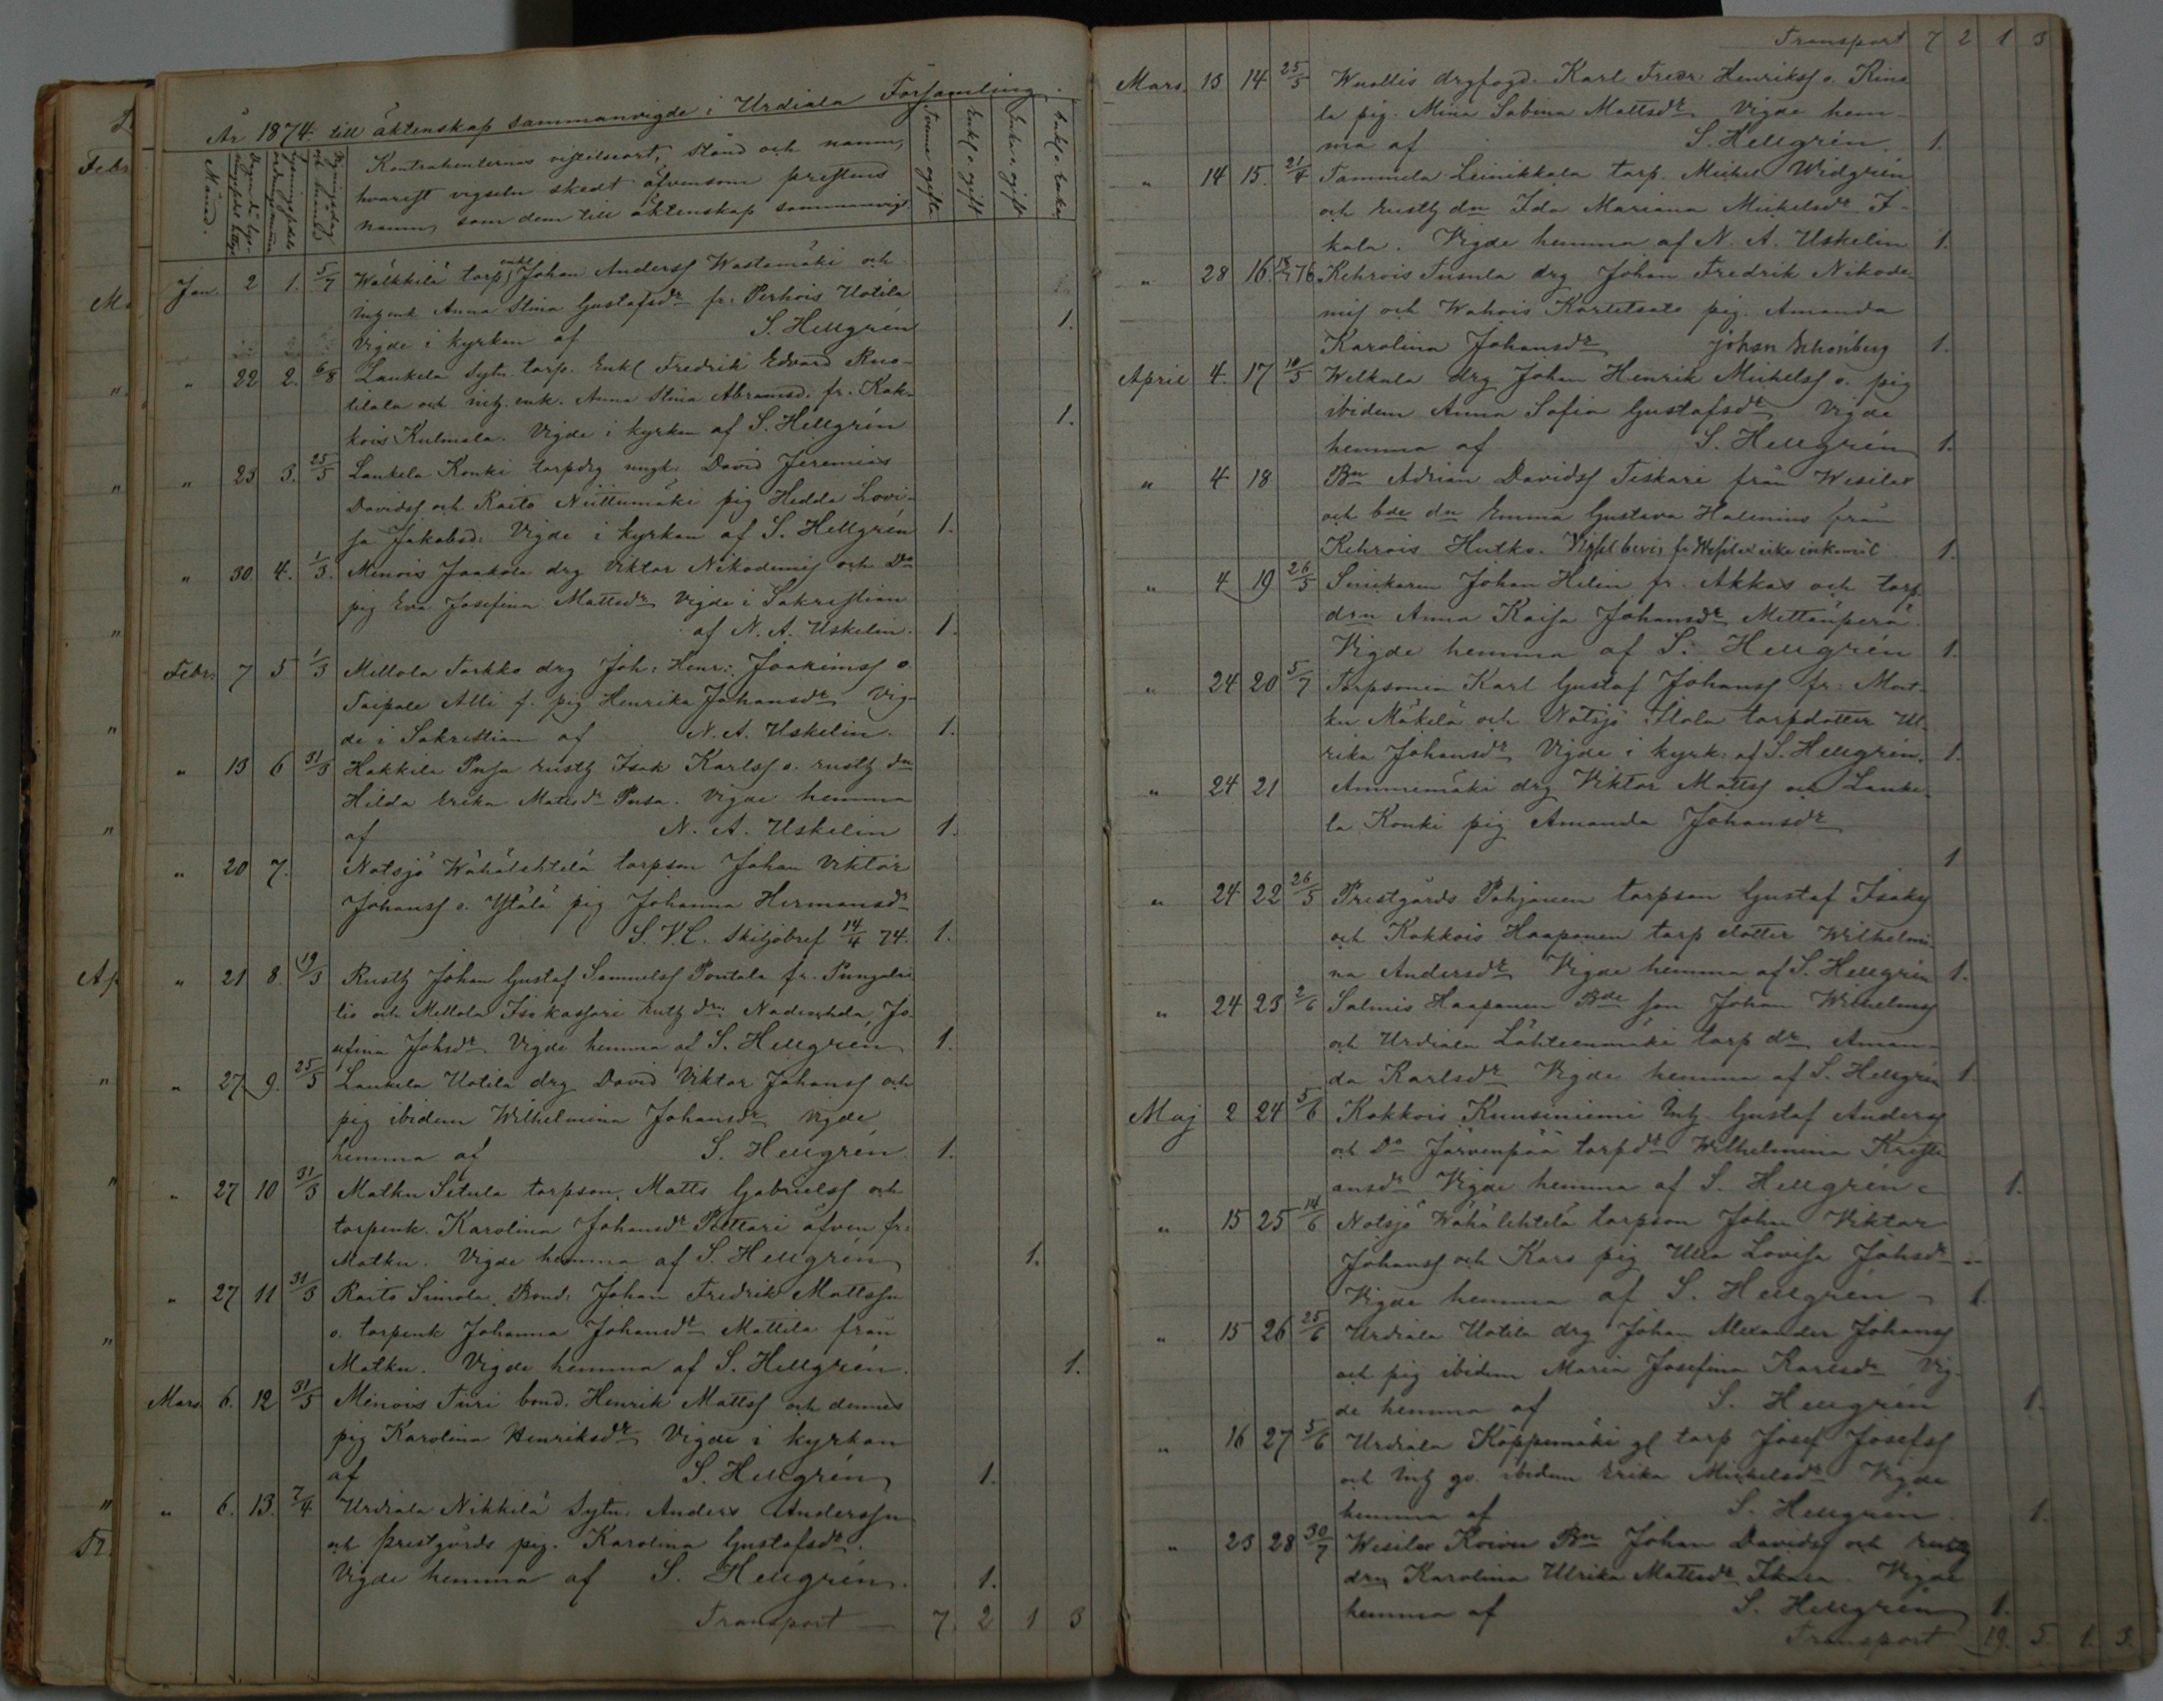 År 1874 till äktenskap sammanvigde i Urdiala Församling.
Månad.
Kontrahenternas vistelseort, stånd och namn,
hvarest vigseln skedt äfvensom prestens
namn, som dem till äktenskap sammanvigt.
Tvenne ogifte
Enkl. o. ogift
Enka o. ogift
Enkl. o. Enka
Jan. 2 1. 5/7 Wälkkilä torp. enkl Johan Anderss Wastamäki och
inh enk Anna Stina Gustafsdr fr. Perhois Uotila
Vigde i kyrkan af S. Hellgrén 1.
" 22 2. 6/8 Laukela Sytn. torp. Enkl Fredrik Edvard Ruo-
tilala och inh. enk. Anna Stina Abramsd. fr. Kok-
kois Kulmala. Vigde i kyrkan af S. Hellgrén 1.
" 23 3. 25/5 Laukela Konki torpdrg ungk. David Jeremias
Davidss och Raito Niittumäki pig Hedda Lovi-
sa Jakobsd. Vigde i kyrkan af S. Hellgrén 1.
" 30 4. 1/3. Menois Jaakola drg Viktor Nikodemiss och Do
pig Eva Josefina Mattsdr Vigde i Sakristian
af N. A. Uskelin. 1.
Febr. 7 5 1/3 Mellola Torkko drg Joh. Henr. Joakimss o.
Taipale Alli f. pig Henrika Johansdr Vig-
de i Sakristian af N. A. Uskelin. 1.
" 13 6 31/3 Hakkila Pusa rusth Isak Karlss o. rusth. dn
Hilda Erika Mattsdr Pusa. Vigde hemma
af N. A. Uskelin 1.
" 20 7. Notsjö Wähälehtelä torpson Johan Viktor
Johanss o. Ytälä pig Johanna Hermansdr
S. V. C. Skiljobref 14/4 74. 1.
" 21 8. 19/3 Rusth Johan Gustaf Samuelss Pontala fr. Pungalai-
tio och Mellola Isokassari rusth drn Nadeschda Jo-
sefina Johsdr Vigde hemma af S. Hellgrén 1.
" 27 9. 25/5 Laukela Uotila drg David Viktor Johanss och
pig ibidem Wilhelmina Johansdr Vigde
hemma af S. Hellgrén 1.
" 27 10 31/3 Matku Setula torpson. Matts Gabrielss och
torpenk. Karolina Johansdr Pettari äfven fr.
Matku. Vigde hemma af S. Hellgrén 1.
" 27 11 31/3 Raito Simola Bond. Johan Fredrik Mattsson
o. torpenk Johanna Johansdr Mattila från
Matku. Vigde hemma af S. Hellgrén. 1.
Mars 6. 12 31/5 Menois Turi bond. Henrik Mattss och dennes
pig Karolina Henriksdr Vigde i kyrkan
af S. Hellgrén 1.
" 6. 13. 7/4 Urdiala Nikkilä Sytn. Anders Andersson
och prestgårds pig. Karolina Gustafsdr.
Vigde hemma af S. Hellgrén. 1.
Transport 7 2 1 3
Transport 7 2 1 3
Mars. 13 14 25/5 Wnollis drgfogd. Karl Fredr. Henrikss o. Kina-
la pig. Mina Sabina Mattsdr Vigde hem-
ma af S. Hellgrén. 1.
" 14 15. 21/4 Tammela Leinikkala torp. Mickel Widgrén
och rusth dn Ida Mariana Mickelsdr I-
kala. Vigde hemma af N. A. Uskelin 1.
" 28 16. Kehrois Tusula drg Johan Fredrik Nikode-
miss och Wahois Karletsalo pig. Amanda
Karolina Johansdr Johan Schönberg 1.
April 4. 17 10/5 Welkala drg Johan Henrik Mickelss o. pig
ibidem Anna Sofia Gustafsdr Vigde
hemma af S. Hellgrén 1.
" 4 18 Bn Adrian Davidss Tiskari från Wesilax
och bde dn Emma Gustava Halenius från
Kehrois Hutko. Vigselbevis fr Wesilax icke inkommit. 1.
" 4 19 26/5 Snickaren Johan Helin fr. Akkas och torp.
drn Anna Kaisa Johansdr Mettänperä.
Vigde hemma af S. Hellgrén 1.
" 24 20 5/7 Torpsonen Karl Gustaf Johanss fr. Mat-
ku Mäkelä och Notsjö Stola torpdotter Ul-
rika Johansdr Vigde i kyrk. af S. Hellgrén. 1.
" 24 21 Ammemäki drg Viktor Mattss och Lauke-
la Konki pig Amanda Johansdr
1
" 24 22 26/5 Prestgårds Pohjanen torpson Gustaf Isaks
och Kokkois Haapanen torp dotter Wilhelmi-
na Andersdr Vigde hemma af S. Hellgrén 1.
" 24 23 2/6 Salmis Haapanen Bde son Johan Wilhelms
och Urdiala Lähteenmäki torp dr Aman-
da Karlsdr Vigde hemma af S. Hellgrén 1.
Maj 2 24 5/6 Kokkois Kuusiniemi Inh. Gustaf Anderss
och Do Järvenpää torpdr Wilhelmina Kristi-
ansdr Vigde hemma af S. Hellgrén 1.
" 15 25 14/6 Notsjö Wähälehtelä torpson Johan Viktor
Johanss och Karo pig Ulla Lovisa Johsdr
Vigde hemma af S. Hellgrén 1.
" 15 26 25/6 Urdiala Uotila drg Johan Alexander Johanss
och pig ibidem Maria Josefina Karlsdr Vig-
de hemma af S. Hellgrén 1.
" 16 27 5/6 Urdiala Koppemäki gl torp Josef Josefss
och Inh gv. ibidem Erika Mickelsdr Vigde
hemma af S. Hellgrén. 1.
" 23 28 30/7 Wesilax Koivu Bn Johan Davidss och rusth
drn Karolina Ulrika Mattsdr Ikala. Vigde
hemma af S. Hellgrén 1.
Transport 19. 5. 1. 3.